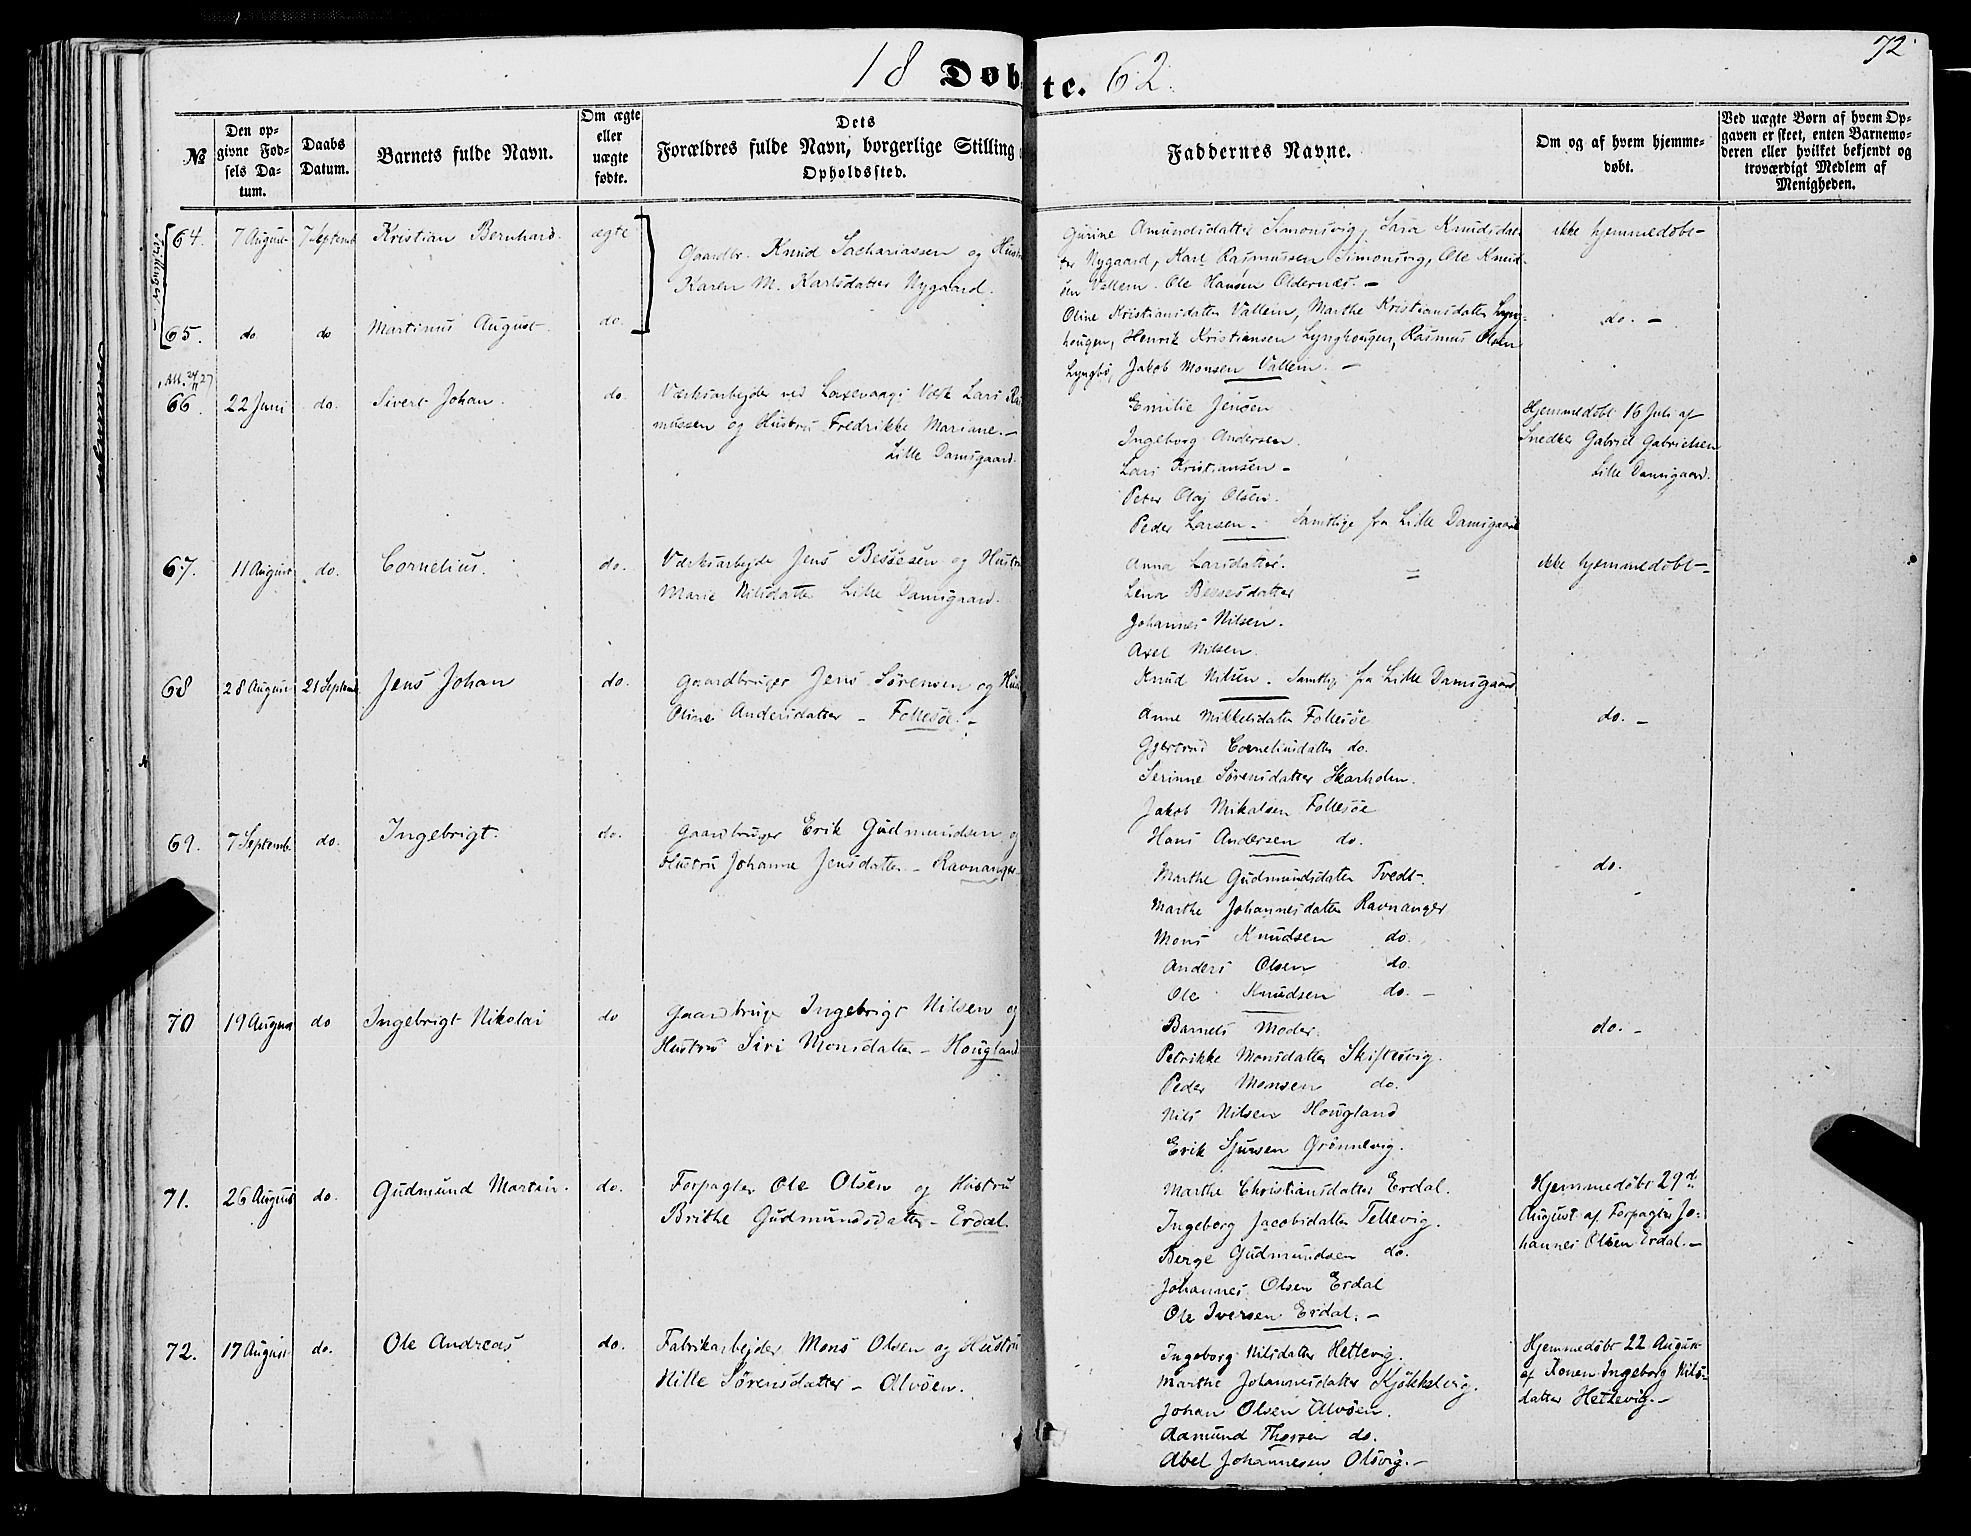 72
18 Døbte. 62.
№
Den opgivne Fødsels Datum.
Daabs Datum.
Barnets fulde Navn.
Om ægte eller uægte fødte.
Dets Forældres fulde Navn, borgerlige Stilling
Opholdssted.
Faddernes Navne.
Om og af hvem hjemmedøbt.
Ved uægte Børn af hvem Opgaven er skeet, enten Barnemoderen eller hvilket bekjendt og troværdigt Medlem af Menigheden.
Tvillinger
64. 7 August 7 Septemb Kristian Bernhard. ægte
Gaardbr. Knud Sachariassen og Hustr
Karen M. Karlsdatter Nygaard.
Gurine Amundsdatter Simonsvig, Sara Knudsdat-
ter Nygaard, Karl Rasmussen Simonsvig, Ole Knud-
sen Vallem. Ole Hansen Oldernæs. —
ikke hjemmedøbt—
65. do do Martinus August. do.
Oline Kristiansdatter Vallem, Marthe Kristiansdatter Lyng-
hougen, Henrik Kristiansen Lynghougen, Rasmus Olsen
Lyngbø, Jakob Monsen Vallem. —
do. —
66. 22 Juni do. Sivert Johan. do.
Værksarbejder ved Laxevaags Værk Lars Ras
mussen og Hustru Fredrikke Mariane. —
Lille Damsgaard.
Emilie Jensen
Ingeborg Andersen.
Lars Kristiansen —
Peter Olaj Olsen.
Peder Larsen. Samtlige fra Lille Damsgaard
Hjemmedøbt 16 Juli af
Snedker Gabriel Gabrielsen
Lille Damsgaard.
67. 11 August do. Cornelius. do.
Værksarbejde Jens Bessesen og Hustr
Marie Nilsdatter Lille Damsgaard.
Anna Larsdatter.
Lena Bessesdatter
Johannes Nilsen.
Axel Nilsen.
Knud Nilsen. Samtlige fra Lille Damsgaard
ikke hjemmedøbt—
68 28 August 21 Septemb. Jens Johan do.
Gaardbruger Jens Sørensen og Hus
Oline Andersdatter — Follesøe. —
Anne Mikkelsdatter Follesøe
Gjertrud Corneliusdatter do.
Serinne Sørensdatter Skarholm.
Jakob Mikalsen Follesøe
Hans Andersen do.
do. —
69. 7 Septemb. do. Ingebrigt. do.
Gaardbruger Erik Gudmundsen og
Hustru Johanne Jensdatter — Ravnanger
Marthe Gudmundsdatter Tvedt.
Marthe Johannesdatter Ravnanger
Mons Knudsen do.
Anders Olsen do.
Ole Knudsen do. —
do.
70 19 August do Ingebrigt Nikolai do
Gaardbruger Ingebrigt Nilsen og
Hustru Siri Monsdatter — Hougland
Barnets Moder.
Petrikke Monsdatter Skiftesvig.
Peder Monsen do.
Nils Nilsen Hougland
Erik Sjursen Grønnevig.
do. —
71. 26 August do. Gudmund Martin. do.
Forpagter Ole Olsen og Hustru
Brithe Gudmundsdatter — Erdal.
Marthe Christiansdatter Erdal.
Ingeborg Jacobsdatter Tellevig.
Berge Gudmundsen do.
Johannes Olsen Erdal
Ole Iversen Erdal. —
Hjemmedøbt 29de
August af Forpagter Jo-
hannes Olsen Erdal. —
72. 17 August do. Ole Andreas do.
Fabrikarbejder Mons Olsen og Hustru
Hille Sørensdatter — Alvøen.
Ingeborg Nilsdatter Hettevig.
Marthe Johannesdatter Kjøkkelvig.
Johan Olsen Alvøen.
Aamund Thorsen do.
Abel Johannesen Olsvig. —
Hjemmedøbt 22 August
af Konen Ingeborg Nils-
datter Hettevig. —